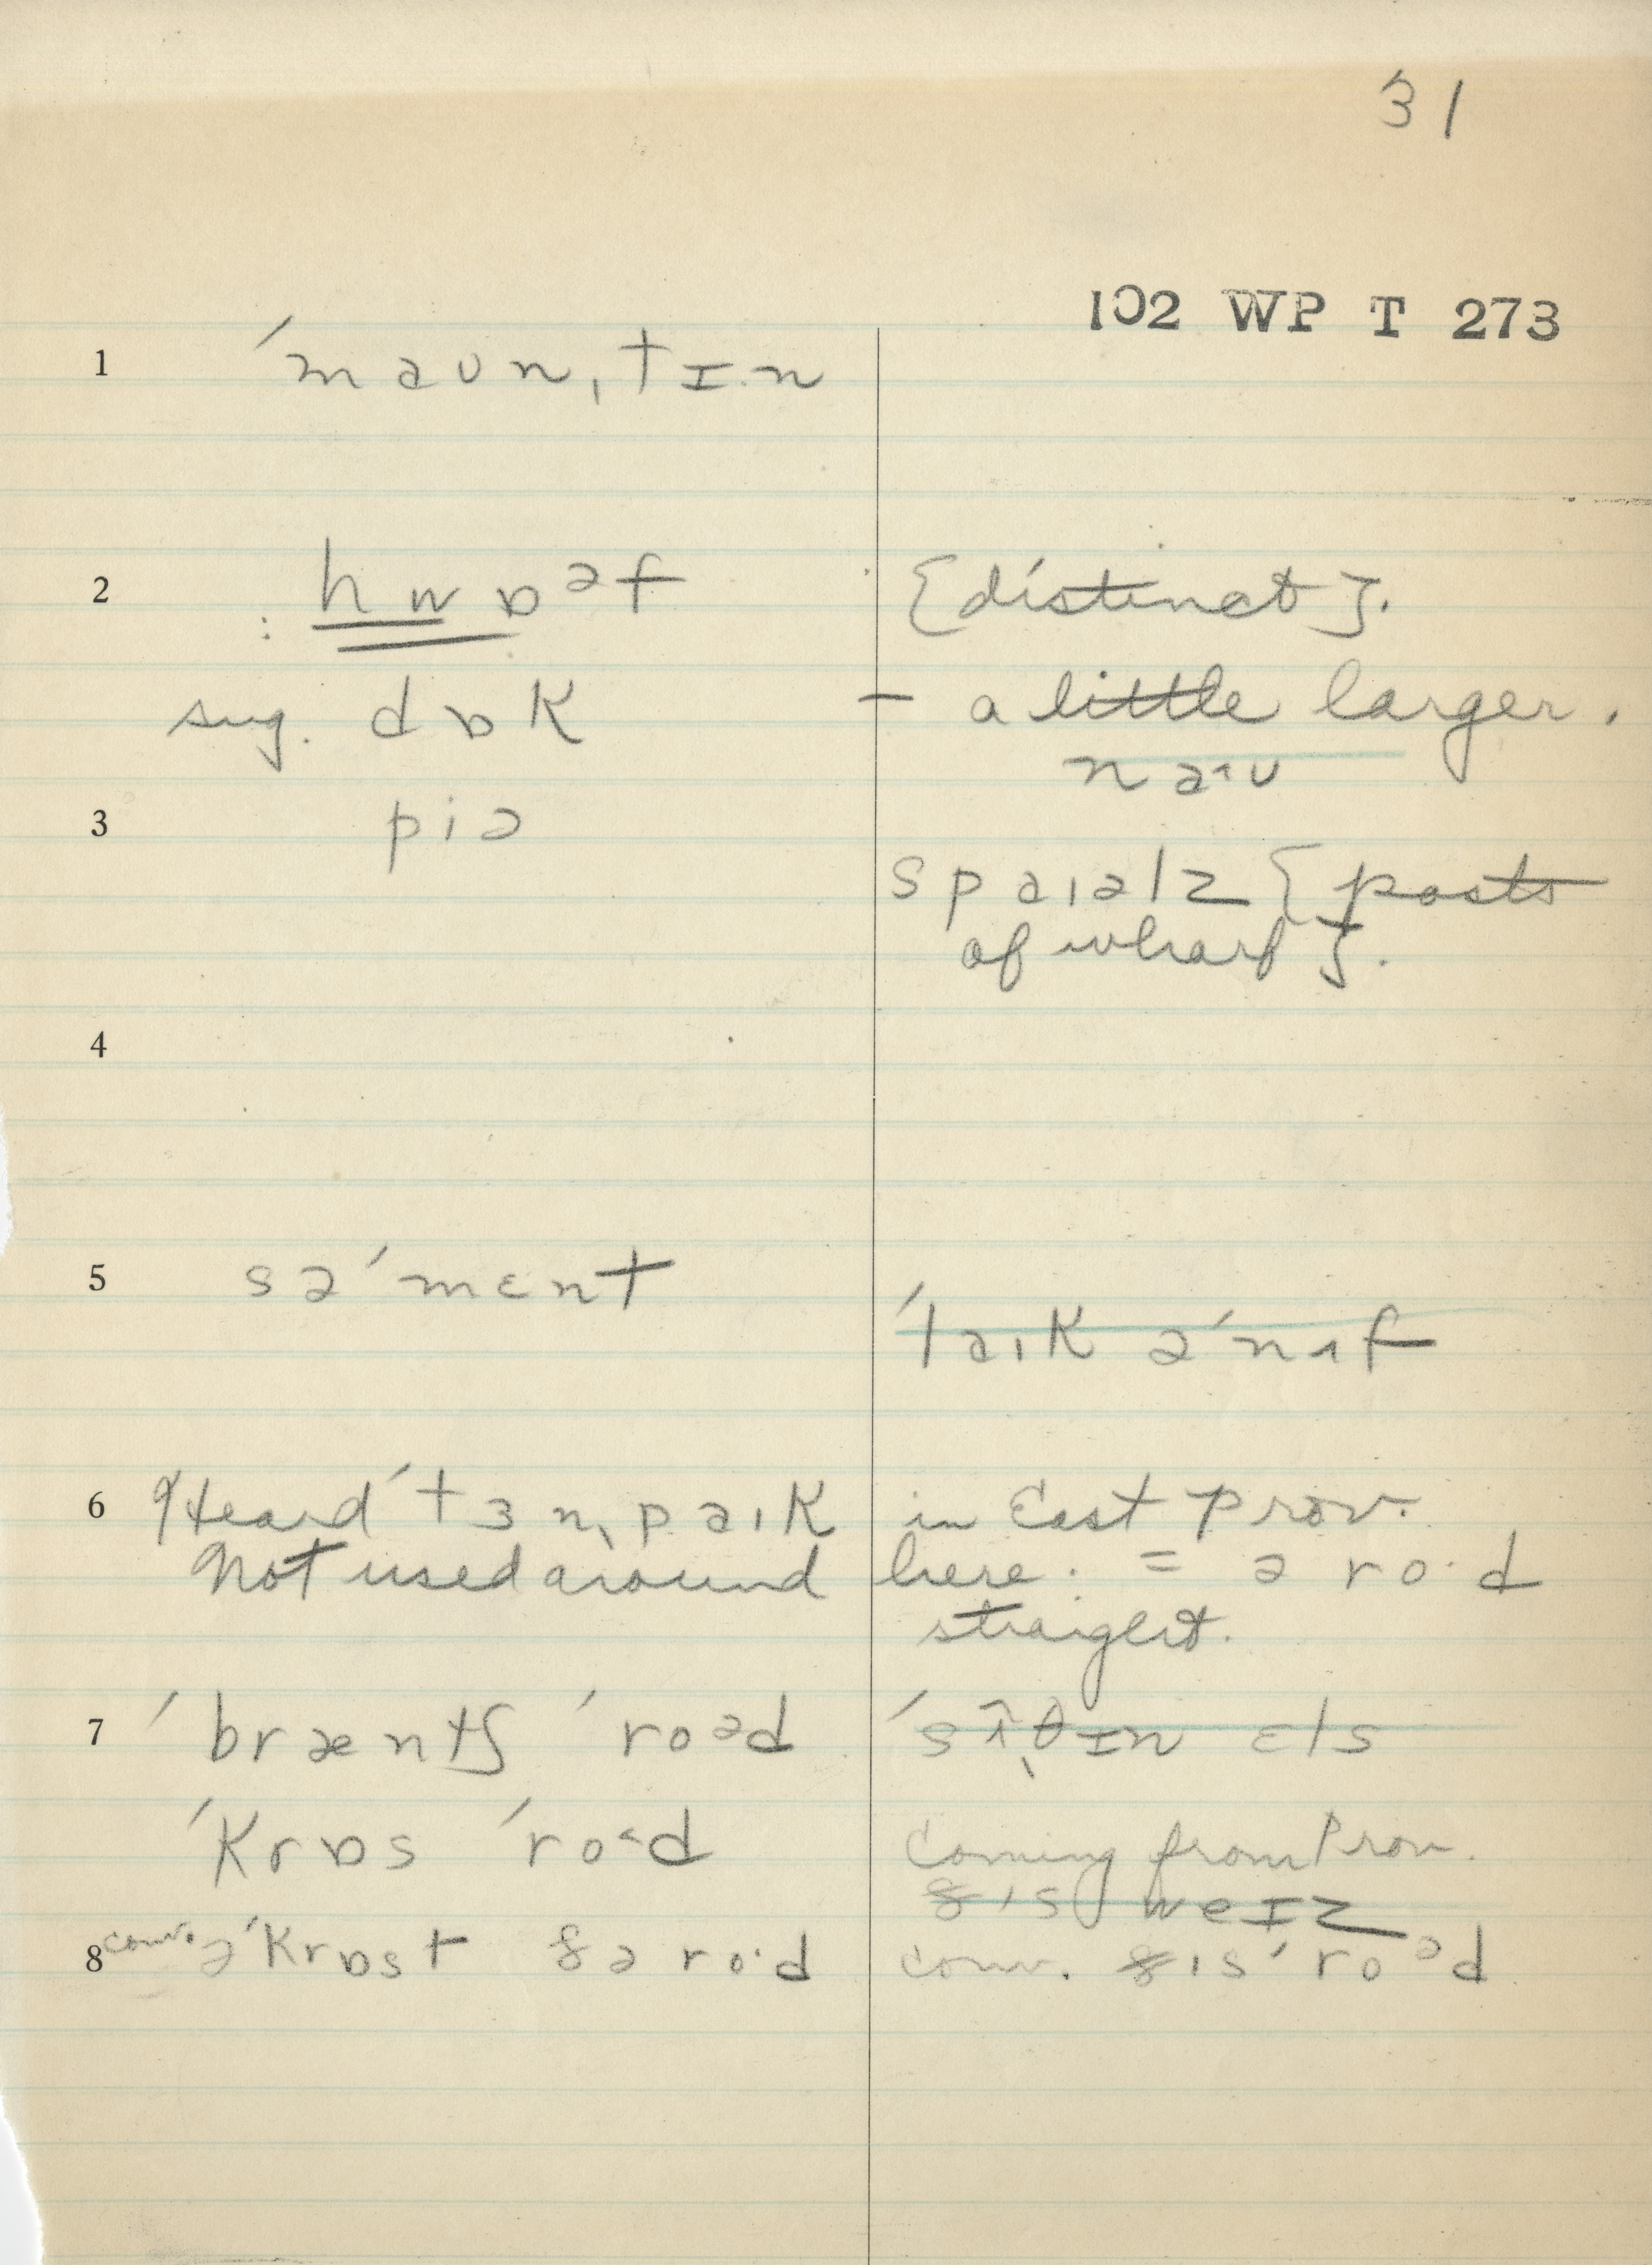 31
102 WP T 273
1 ˈmaʊnˌtɪn
2 : hwɒᵊf {distinct}.
sug. dɒk – a little larger.
naˑʊ
3 piə
spaɪəlz {posts
of wharf}.
4
5 səˈmɛnt
ˈlaɪk əˈnʌf
6 Heard ˈtɜnˌpaɪk in East Prov.
Not used around here. = ə roˑd
straight.
7 ˈbræntʃ ˈroᵊd ˈsʌ̂ˌθɪn ɛls
ˈkrɒs ˈroˑd Coming from Prov.
ðɪs weɪz
8 conv. əˈkrɒst ðə roˑd conv. ðɪs ˈroᵊd